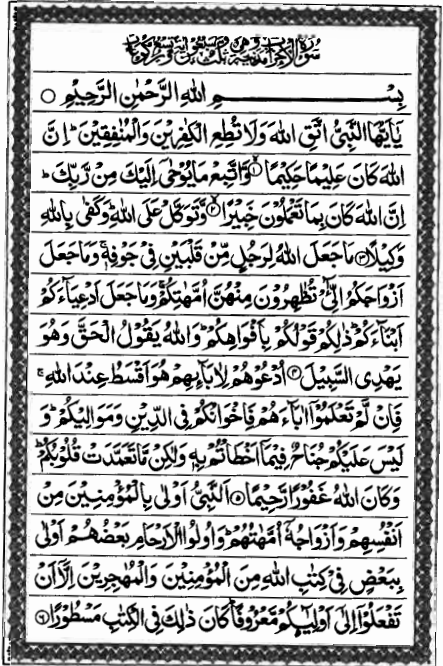 سُوْرَةُ الْاَحْزَابِ مَدَنِيَّةٌ وَّهِيَ ثَلٰثٌ وَّسَبْعُوْنَ اٰيَةً وَّتِسْعُ رُكُوْعَاتٍ
بِسْمِ اللهِ الرَّحْمٰنِ الرَّحِيْمِ ○
يٰۤاَيُّهَا النَّبِيُّ اتَّقِ اللهَ وَلَا تُطِعِ الْكٰفِرِيْنَ وَالْمُنٰفِقِيْنَ ؕ اِنَّ
اللهَ كَانَ عَلِيْمًا حَكِيْمًا ۙ۱ وَّاتَّبِعْ مَا يُوْحٰۤى اِلَيْكَ مِنْ رَّبِّكَ ؕ
اِنَّ اللهَ كَانَ بِمَا تَعْمَلُوْنَ خَبِيْرًا ۙ۲ وَّتَوَكَّلْ عَلَى اللهِ ؕ وَكَفٰى بِاللهِ
وَكِيْلًا ۳ مَا جَعَلَ اللهُ لِرَجُلٍ مِّنْ قَلْبَيْنِ فِيْ جَوْفِهٖ ۚ وَمَا جَعَلَ
اَزْوَاجَكُمُ الّٰٓـِٔيْ تُظٰهِرُوْنَ مِنْهُنَّ اُمَّهٰتِكُمْ ۚ وَمَا جَعَلَ اَدْعِيَآءَكُمْ
اَبْنَآءَكُمْ ؕ ذٰلِكُمْ قَوْلُكُمْ بِاَفْوَاهِكُمْ ؕ وَاللهُ يَقُوْلُ الْحَقَّ وَهُوَ
يَهْدِي السَّبِيْلَ ۴ اُدْعُوْهُمْ لِاٰبَآئِهِمْ هُوَ اَقْسَطُ عِنْدَ اللهِ ۚ
فَاِنْ لَّمْ تَعْلَمُوْۤا اٰبَآءَهُمْ فَاِخْوَانُكُمْ فِي الدِّيْنِ وَمَوَالِيْكُمْ ؕ وَ
لَيْسَ عَلَيْكُمْ جُنَاحٌ فِيْمَاۤ اَخْطَاْتُمْ بِهٖ ۙ وَلٰكِنْ مَّا تَعَمَّدَتْ قُلُوْبُكُمْ ؕ
وَكَانَ اللهُ غَفُوْرًا رَّحِيْمًا ۵ اَلنَّبِيُّ اَوْلٰى بِالْمُؤْمِنِيْنَ مِنْ
اَنْفُسِهِمْ وَاَزْوَاجُهٗۤ اُمَّهٰتُهُمْ ؕ وَاُولُوا الْاَرْحَامِ بَعْضُهُمْ اَوْلٰى
بِبَعْضٍ فِيْ كِتٰبِ اللهِ مِنَ الْمُؤْمِنِيْنَ وَالْمُهٰجِرِيْنَ اِلَّاۤ اَنْ
تَفْعَلُوْۤا اِلٰۤى اَوْلِيٰٓئِكُمْ مَّعْرُوْفًا ؕ كَانَ ذٰلِكَ فِي الْكِتٰبِ مَسْطُوْرًا ۶